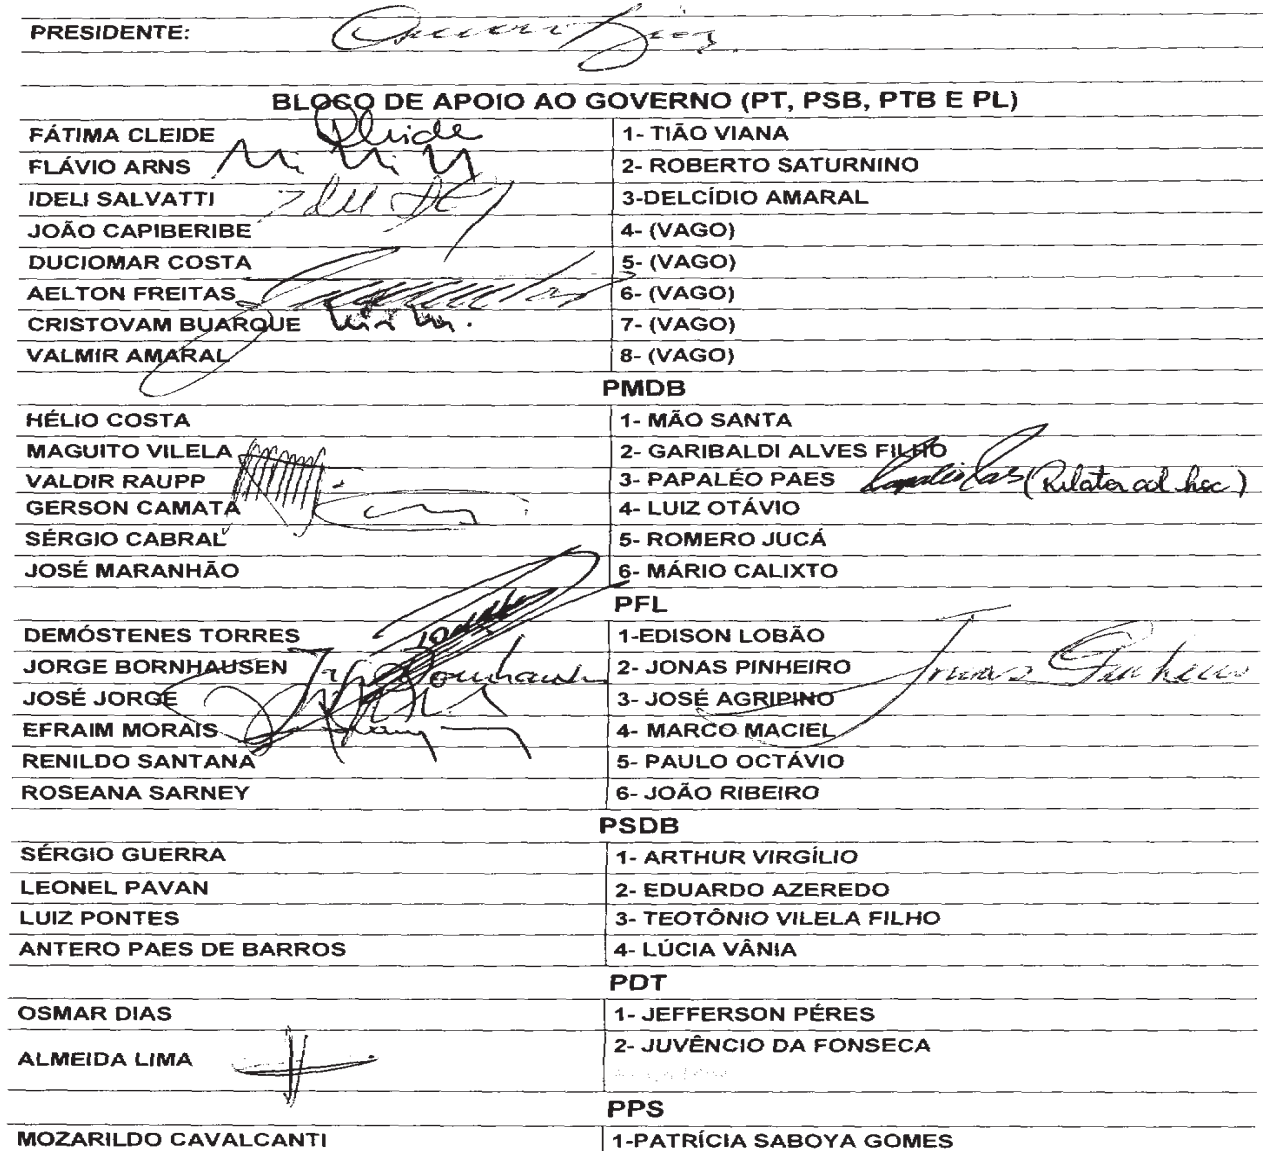 PRESIDENTE: Osmar Dias
BLOCO DE APOIO AO GOVERNO (PT, PSB, PTB E PL)
FÁTIMA CLEIDE Cleide 1- TIÃO VIANA
FLÁVIO ARNS 2- ROBERTO SATURNINO
IDELI SALVATTI 3-DELCÍDIO AMARAL
JOÃO CAPIBERIBE 4- (VAGO)
DUCIOMAR COSTA 5- (VAGO)
AELTON FREITAS 6- (VAGO)
CRISTOVAM BUARQUE 7- (VAGO)
VALMIR AMARAL 8- (VAGO)
PMDB
HÉLIO COSTA 1- MÃO SANTA
MAGUITO VILELA 2- GARIBALDI ALVES FILHO
VALDIR RAUPP 3- PAPALÉO PAES (Relator ad hoc)
GERSON CAMATA 4- LUIZ OTÁVIO
SÉRGIO CABRAL 5- ROMERO JUCÁ
JOSÉ MARANHÃO 6- MÁRIO CALIXTO
PFL
DEMÓSTENES TORRES 1-EDISON LOBÃO
JORGE BORNHAUSEN Bornhausen 2- JONAS PINHEIRO Jonas Pinheiro
JOSÉ JORGE 3- JOSÉ AGRIPINO
EFRAIM MORAIS 4- MARCO MACIEL
RENILDO SANTANA 5- PAULO OCTÁVIO
ROSEANA SARNEY 6- JOÃO RIBEIRO
PSDB
SÉRGIO GUERRA 1- ARTHUR VIRGÍLIO
LEONEL PAVAN 2- EDUARDO AZEREDO
LUIZ PONTES 3- TEOTÔNIO VILELA FILHO
ANTERO PAES DE BARROS 4- LÚCIA VÂNIA
PDT
OSMAR DIAS 1- JEFFERSON PÉRES
ALMEIDA LIMA 2- JUVÊNCIO DA FONSECA
PPS
MOZARILDO CAVALCANTI 1-PATRÍCIA SABOYA GOMES